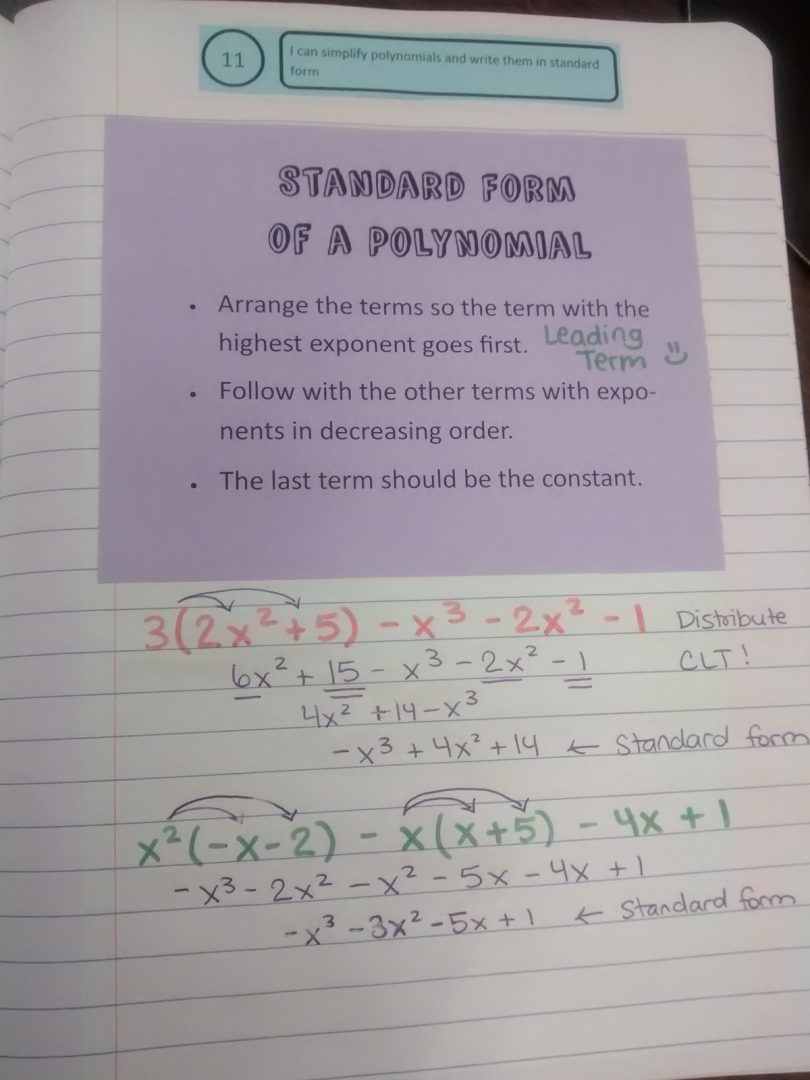 11
I can simplify polynomials and write them in standard
form
STANDARD FORM
OF A POLYNOMIAL
• Arrange the terms so the term with the
highest exponent goes first. Leading
Term
• Follow with the other terms with expo-
nents in decreasing order.
• The last term should be the constant.
3(2x² + 5) - x³ - 2x² - 1 Distribute
6x² + 15 - x³ - 2x² - 1 CLT!
4x² + 14 - x³
-x³ + 4x² + 14 ← Standard form
x²(-x-2) - x(x+5) - 4x + 1
-x³ - 2x² - x² - 5x - 4x + 1
-x³ - 3x² - 5x + 1 ← Standard form